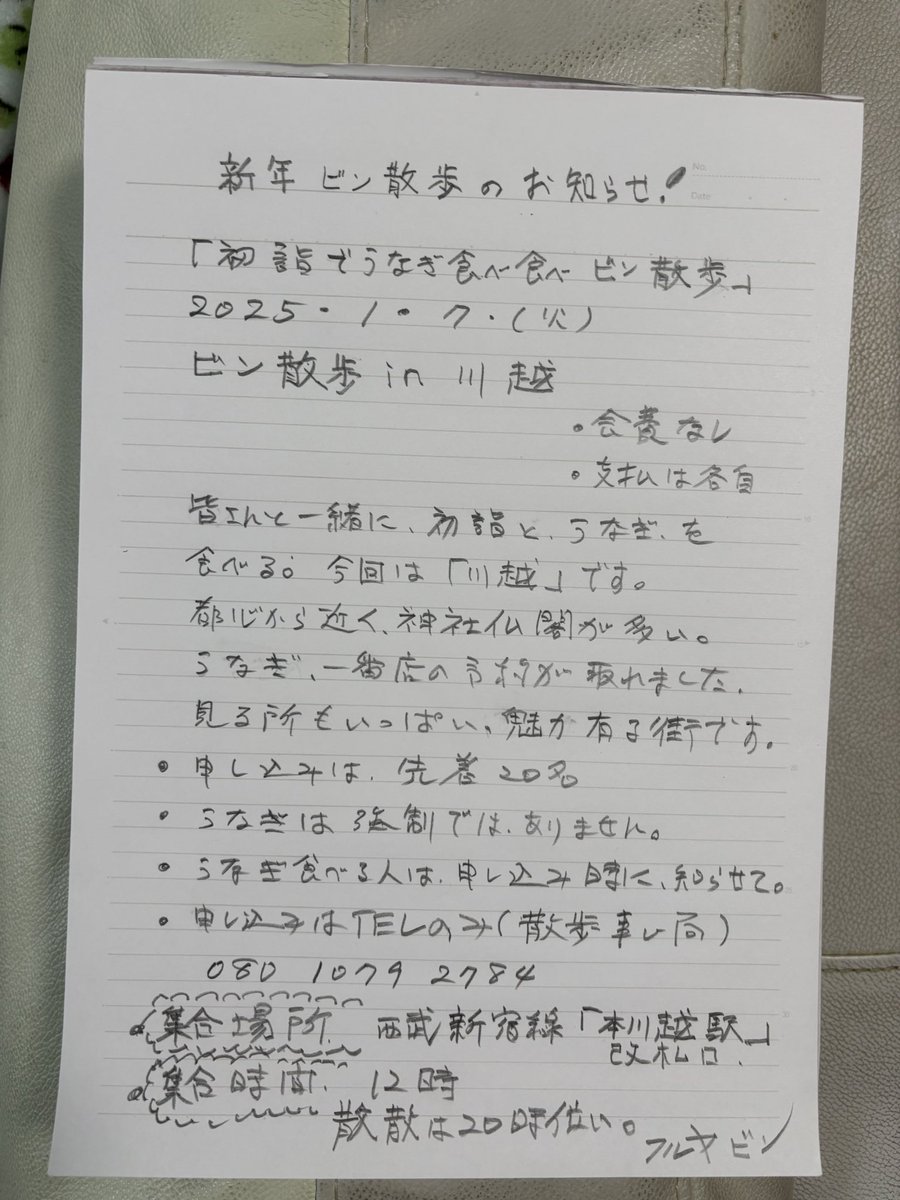 No.
Date
新年 ビン散歩のお知らせ!
「初詣でうなぎ食べ食べ ビン散歩」
2025・1・7・(火)
ビン散歩 in 川越
・会費なし
・支払は各自
皆さんと一緒に、初詣と、うなぎ、を
食べる。今回は「川越」です。
都心から近く、神社仏閣が多い。
うなぎ、一番店の予約が取れました、
見る所もいっぱい、魅力有る街です。
・申し込みは、先着20名
・うなぎは強制では、ありません。
・うなぎ食べる人は、申し込み時に、知らせて。
・申し込みはTELのみ(散歩事ム局)
080 1079 2784
集合場所、 西武新宿線「本川越駅」
改札口、
集合時間、 12時
散散は20時位い。
フルオビン